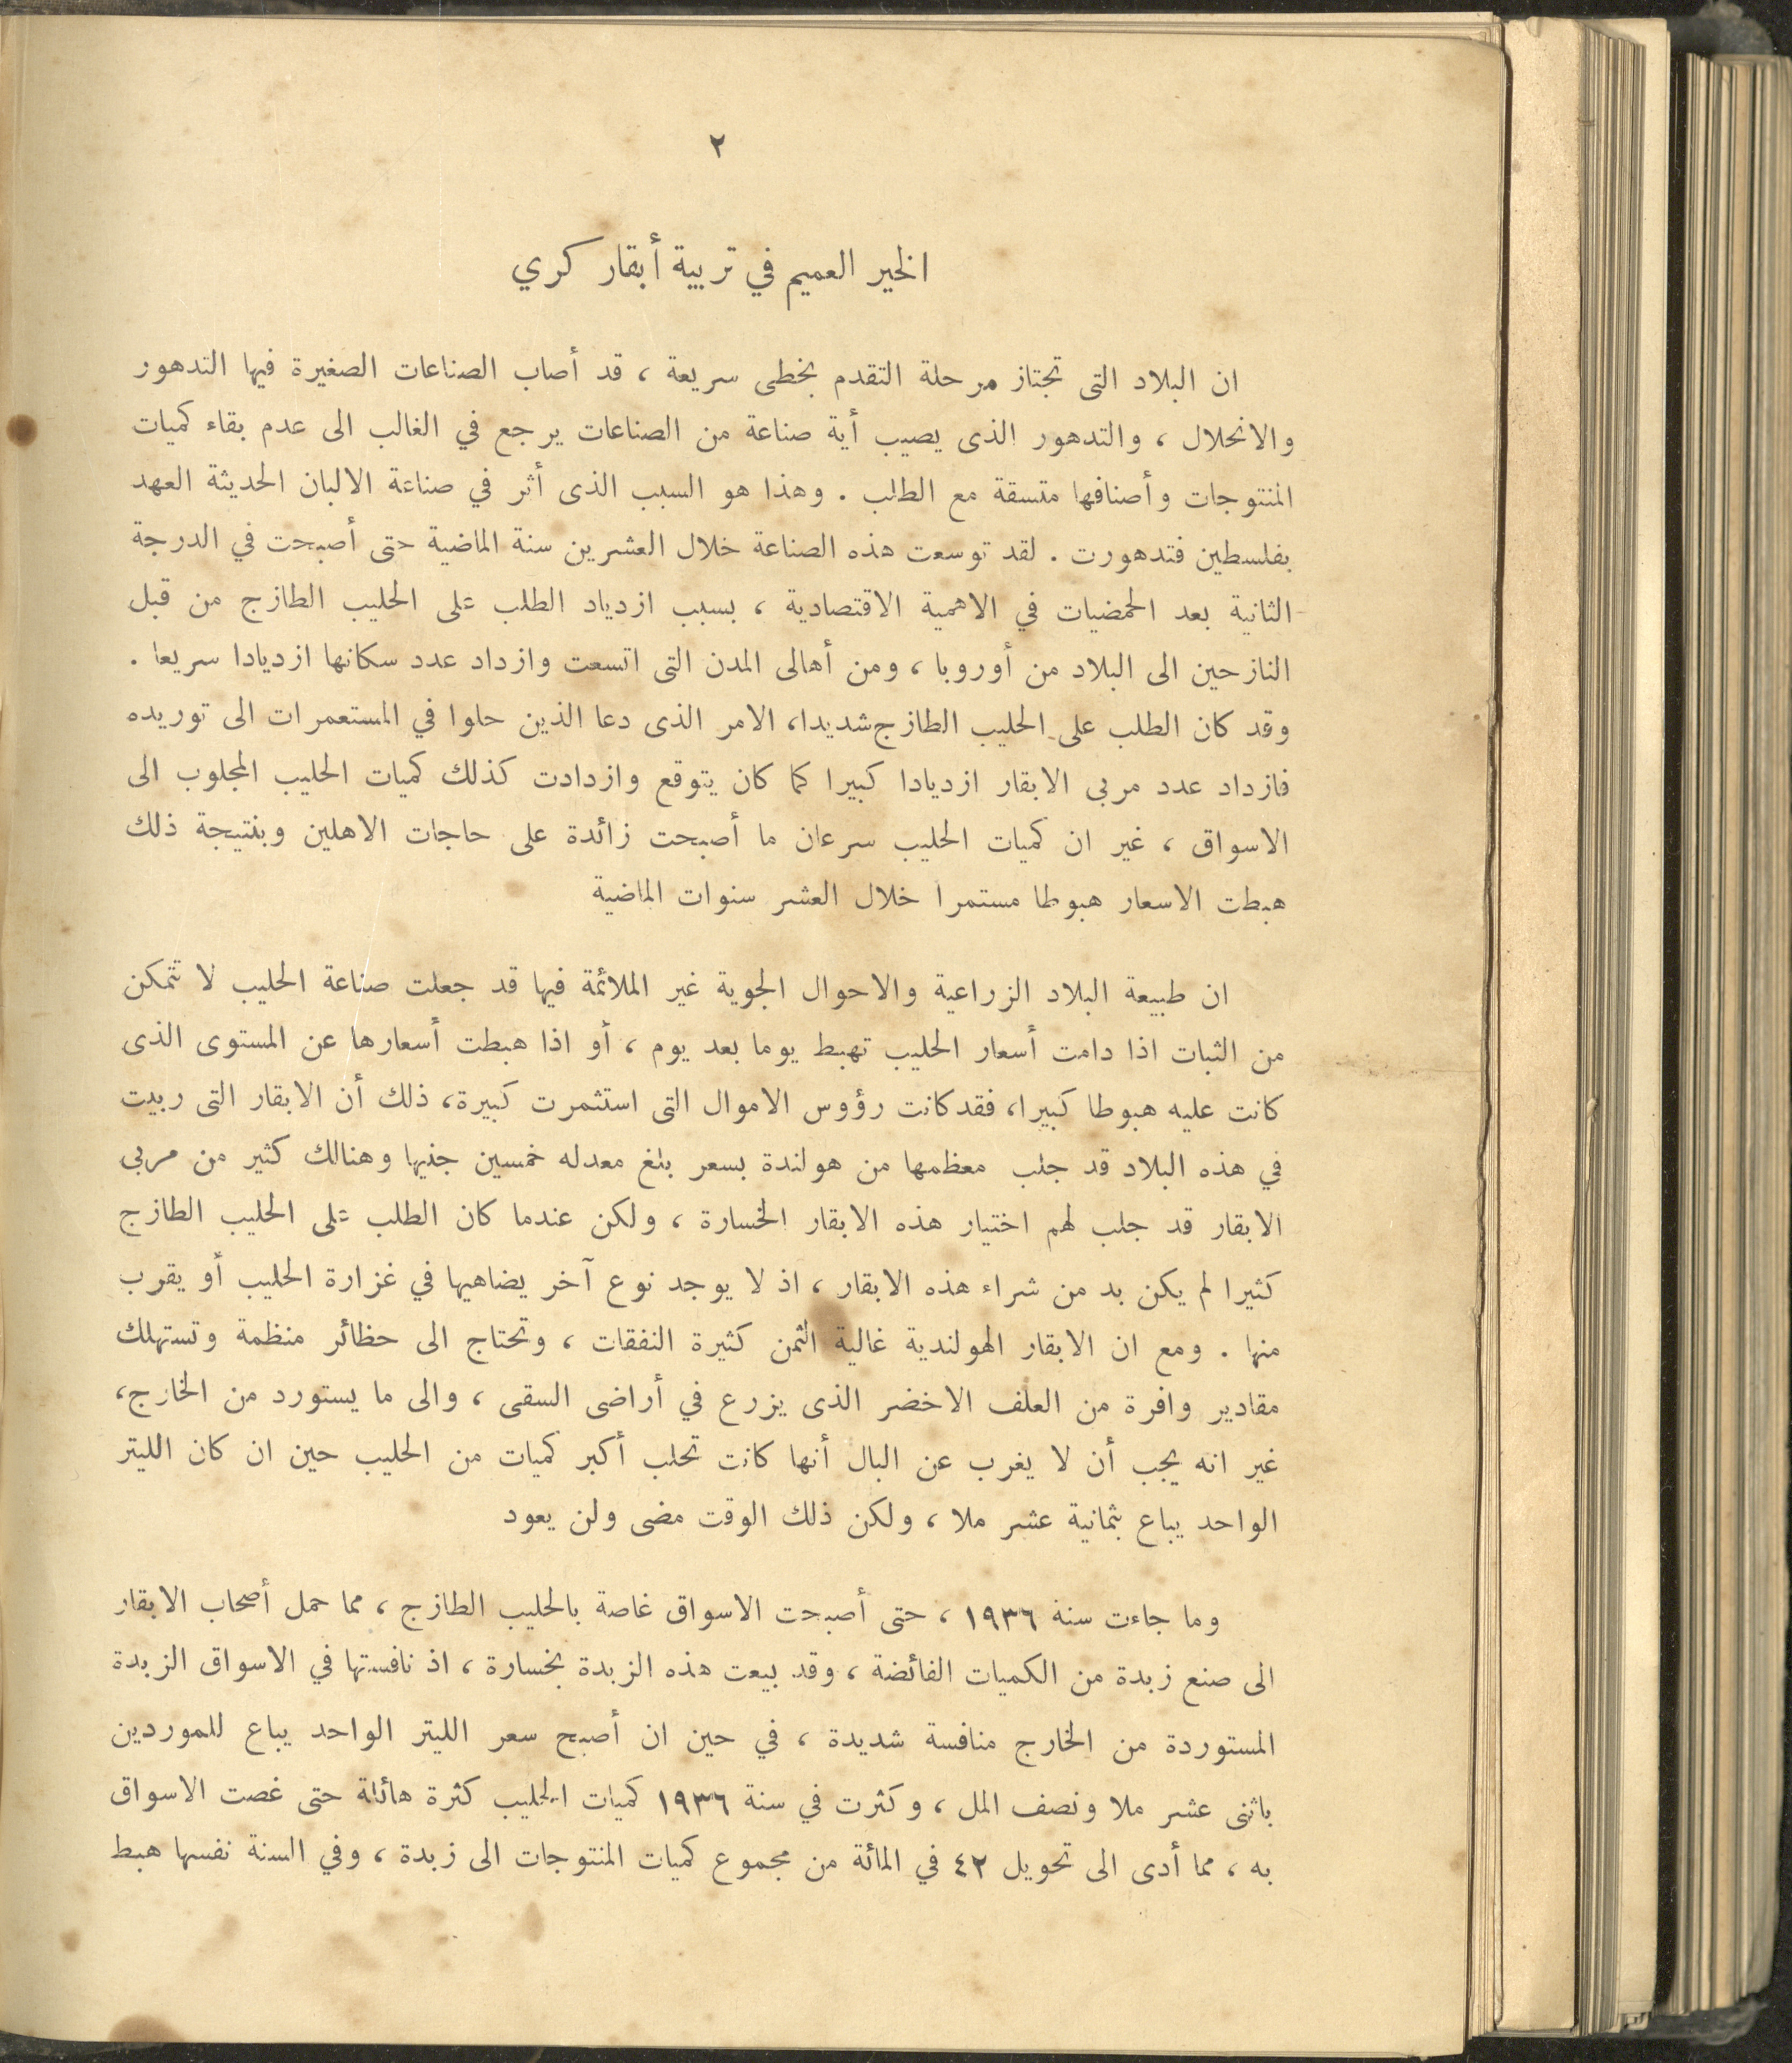 ٢
الخير العميم في تربية أبقار كري
ان البلاد التى تجتاز مرحلة التقدم بخطى سريعة ، قد أصاب الصناعات الصغيرة فيها التدهور
والانحلال ، والتدهور الذى يصيب أية صناعة من الصناعات يرجع في الغالب الى عدم بقاء كميات
المنتوجات وأصنافها متسقة مع الطلب . وهذا هو السبب الذى أثر في صناعة الالبان الحديثة العهد
بفلسطين فتدهورت . لقد توسعت هذه الصناعة خلال العشرين سنة الماضية حتى أصبحت في الدرجة
الثانية بعد الحمضيات في الاهمية الاقتصادية ، بسبب ازدياد الطلب على الحليب الطازج من قبل
النازحين الى البلاد من أوروبا ، ومن أهالى المدن التى اتسعت وازداد عدد سكانها ازديادا سريعا .
وقد كان الطلب على الحليب الطازج شديدا، الامر الذى دعا الذين حلوا في المستعمرات الى توريده
فازداد عدد مربى الابقار ازديادا كبيرا كما كان يتوقع وازدادت كذلك كميات الحليب المجلوب الى
الاسواق ، غير ان كميات الحليب سرعان ما أصبحت زائدة على حاجات الاهلين وبنتيجة ذلك
هبطت الاسعار هبوطا مستمرا خلال العشر سنوات الماضية
ان طبيعة البلاد الزراعية والاحوال الجوية غير الملائمة فيها قد جعلت صناعة الحليب لا تتمكن
من الثبات اذا دامت أسعار الحليب تهبط يوما بعد يوم ، أو اذا هبطت أسعارها عن المستوى الذى
كانت عليه هبوطا كبيرا، فقد كانت رؤوس الاموال التى استثمرت كبيرة، ذلك أن الابقار التى ربيت
في هذه البلاد قد جلب معظمها من هولندة بسعر بلغ معدله خمسين جنيها وهنالك كثير من مربى
الابقار قد جلب لهم اختيار هذه الابقار الخسارة ، ولكن عندما كان الطلب على الحليب الطازج
كثيرا لم يكن بد من شراء هذه الابقار ، اذ لا يوجد نوع آخر يضاهيها في غزارة الحليب أو يقرب
منها . ومع ان الابقار الهولندية غالية الثمن كثيرة النفقات ، وتحتاج الى حظائر منظمة وتستهلك
مقادير وافرة من العلف الاخضر الذى يزرع في أراضى السقى ، والى ما يستورد من الخارج،
غير انه يجب أن لا يغرب عن البال أنها كانت تحلب أكبر كميات من الحليب حين ان كان الليتر
الواحد يباع بثمانية عشر ملا ، ولكن ذلك الوقت مضى ولن يعود
وما جاءت سنة ١٩٣٦ ، حتى أصبحت الاسواق غاصة بالحليب الطازج ، مما حمل أصحاب الابقار
الى صنع زبدة من الكميات الفائضة ، وقد بيعت هذه الزبدة بخسارة ، اذ نافستها في الاسواق الزبدة
المستوردة من الخارج منافسة شديدة ، في حين ان أصبح سعر الليتر الواحد يباع للموردين
باثنى عشر ملا ونصف المل ، وكثرت في سنة ١٩٣٦ كميات الحليب كثرة هائلة حتى غصت الاسواق
به ، مما أدى الى تحويل ٤٢ في المائة من مجموع كميات المنتوجات الى زبدة ، وفي السنة نفسها هبط